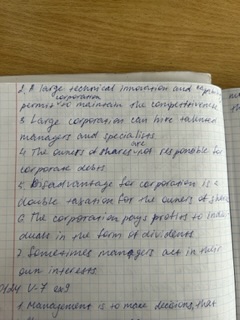 2. A large technical innovation and
corporation
permits to maintain the competitiveness
3. Large corporation can hire talented
managers and specialists
are
4. The owners of shares not responsible for
corporate debts
5. Disadvantage for corporation is
double taxation for the owners of
6. The corporation pays profits to
duals in the form of dividents
7. Sometimes managers act in their
own interests
V-7 ex9
1. Management is to make decisions, that